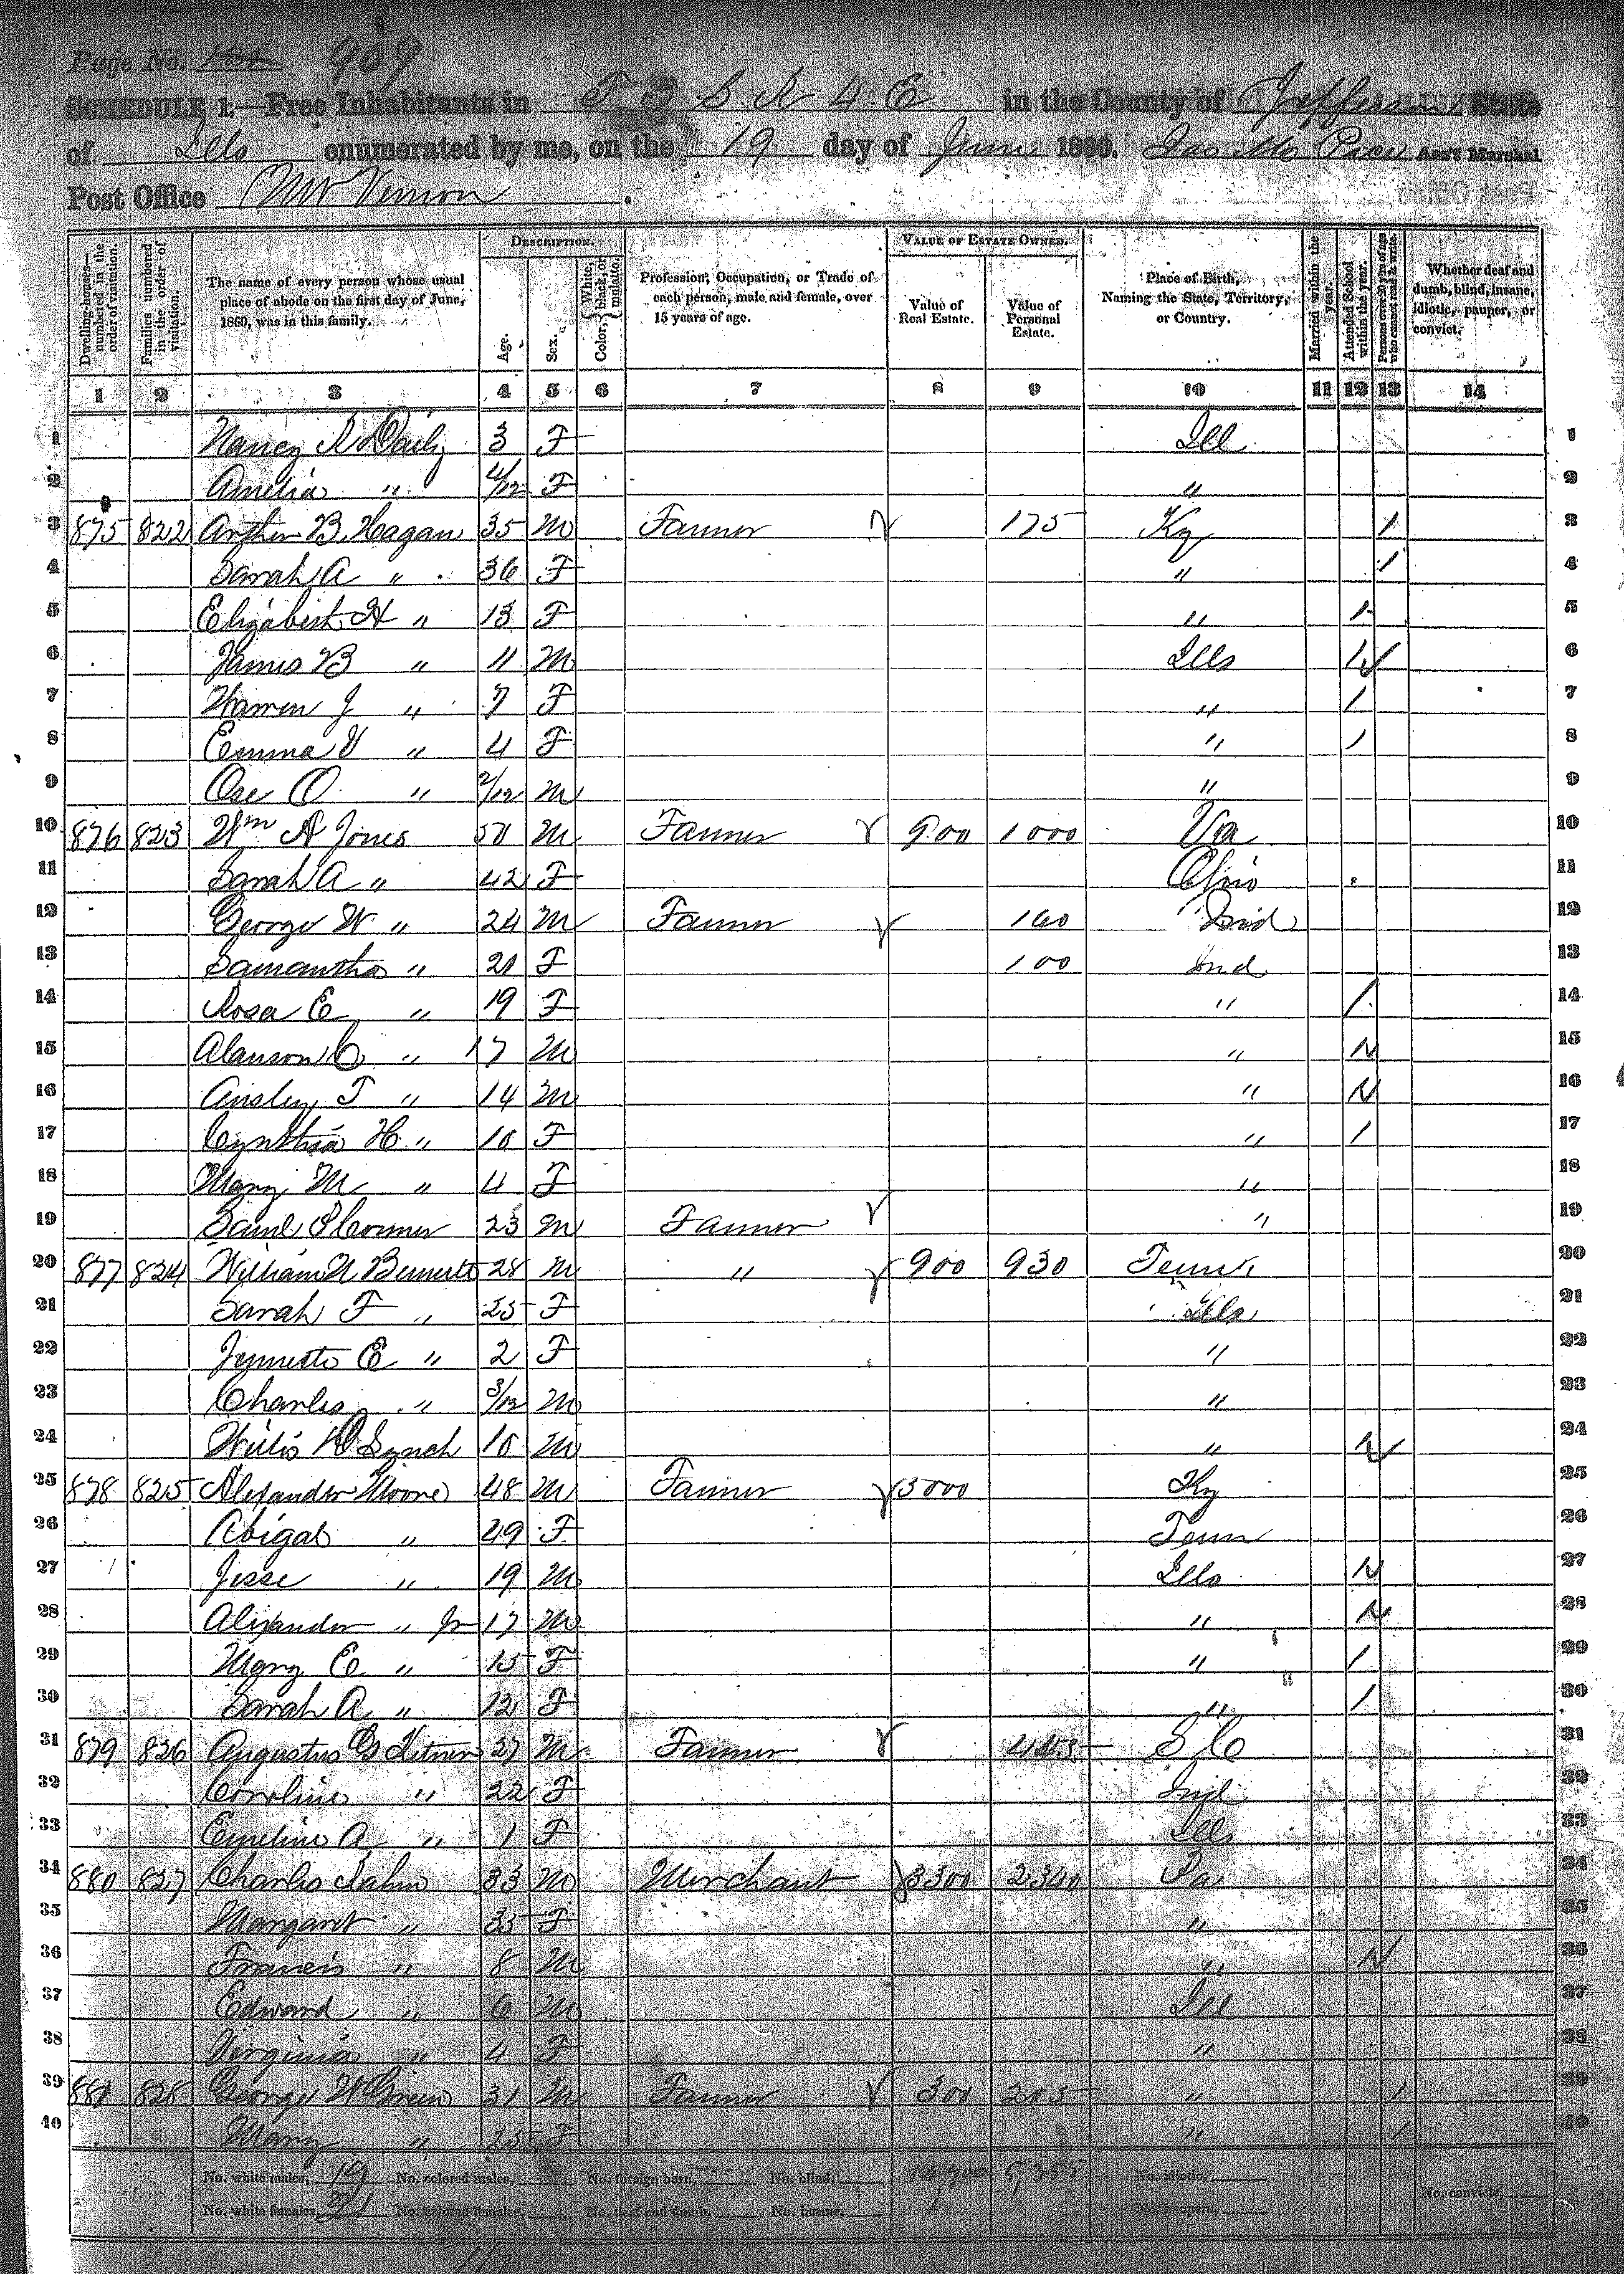 Page No. 909
SCHEDULE 1.—Free Inhabitants in T 3 S R 4 E in the County of Jefferson State
of Ills enumerated by me, on the 19 day of June 1860. Jas Mc Pace Ass't Marshal
Post Office Mt Vernon.
Dwelling-houses—numbered in the order of visitation.
Families numbered in the order of visitation.
The name of every person whose usual place of abode on the first day of June, 1860, was in this family.
DESCRIPTION.
Age.
Sex.
Color, {White, black, or mulatto.
Profession, Occupation, or Trade of each person, male and female, over 15 years of age.
VALUE OF ESTATE OWNED.
Value of Real Estate.
Value of Personal Estate.
Place of Birth, Naming the State, Territory, or Country.
Married within the year.
Attended School within the year.
Persons over 20 y'rs of age who cannot read & write.
Whether deaf and dumb, blind, insane, idiotic, pauper, or convict.
1 2 3 4 5 6 7 8 9 10 11 12 13 14
1 Nancy Daily 3 F Ill 1
2 Amelia " 4/12 F " 2
3 875 822 Arthur B. Hagan 35 M Farmer 175 Ky 1 3
4 Sarah A " 36 F " 1 4
5 Elizabeth H " 13 F " 1 5
6 James B " 11 M Ills 1 6
7 Warren J " 7 F " 1 7
8 Emma V " 4 F " 1 8
9 Ose O. " 2/12 M " 9
10 876 823 Wm A Jones 50 M Farmer 900 1000 Va 10
11 Sarah A " 42 F Ohio 11
12 George W " 24 M Farmer 160 Ind 12
13 Samantha " 21 F 100 Ind 13
14 Rosa E " 19 F " 1 14
15 Alanson C " 17 M " 1 15
16 Ansley T " 14 M " 1 16
17 Cynthia H " 10 F " 1 17
18 Mary M " 4 F " 18
19 Saml 23 M Farmer " 19
20 877 824 William Bennett 28 M " 900 930 Tenn 20
21 Sarah F " 25 F Ills 21
22 E " 2 F " 22
23 Charles " 3/12 M " 23
24 Willis Lynch 10 M " 1 24
25 878 825 Alexander Moore 48 M Farmer 3000 Ky 25
26 Abigal " 49 F Tenn 26
27 Jesse " 19 M Ills 1 27
28 Alixander " Jr 17 M " 1 28
29 Mary E " 15 F " 1 29
30 Sarah A " 12 F " 1 30
31 879 826 Augustus G 27 M Farmer S C 31
32 Caroline " 22 F Ind 32
33 Emeline A " 1 F Ills 33
34 880 827 Charles 33 M Merchant 3300 2340 Pa 34
35 Margaret " 35 F " 35
36 Francis " 8 M " 1 36
37 Edward " 6 M Ill 37
38 Virginia " 4 F " 38
39 881 828 George W Green 31 M Farmer 300 205 " 1 39
40 Mary " 25 F " 1 40
No. white males, 19 No. colored males, No. foreign born, No. blind, No. idiotic,
No. white females, 21 No. colored females, No. deaf and dumb, No. insane, No. paupers, No. convicts,